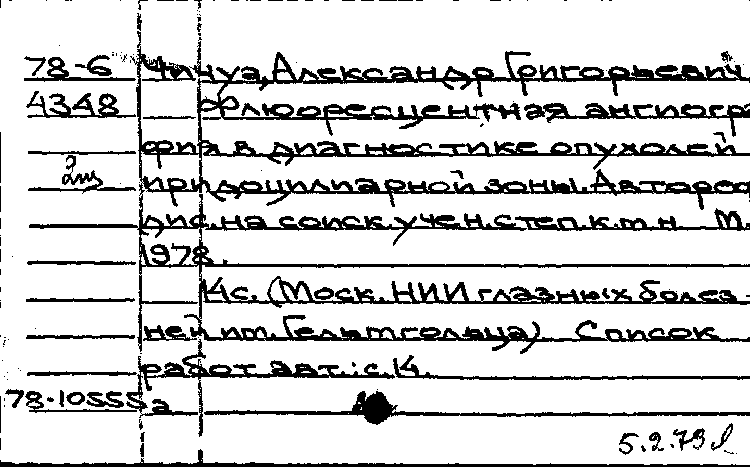 78-6 Чичуа, Александр Григорьевич
4348 Флюоресцентная ангиогра-
фия в диагностике опухолей
2 экз иридоцилиарной зоны. Автореф.
дис. на соиск. учен. степ. к.м.н. М.
1978.
14с. (Моск. НИИ глазных болез-
ней им. Гельмгольца) Список
работ авт.: с. 14.
78-10555а
5.2.79